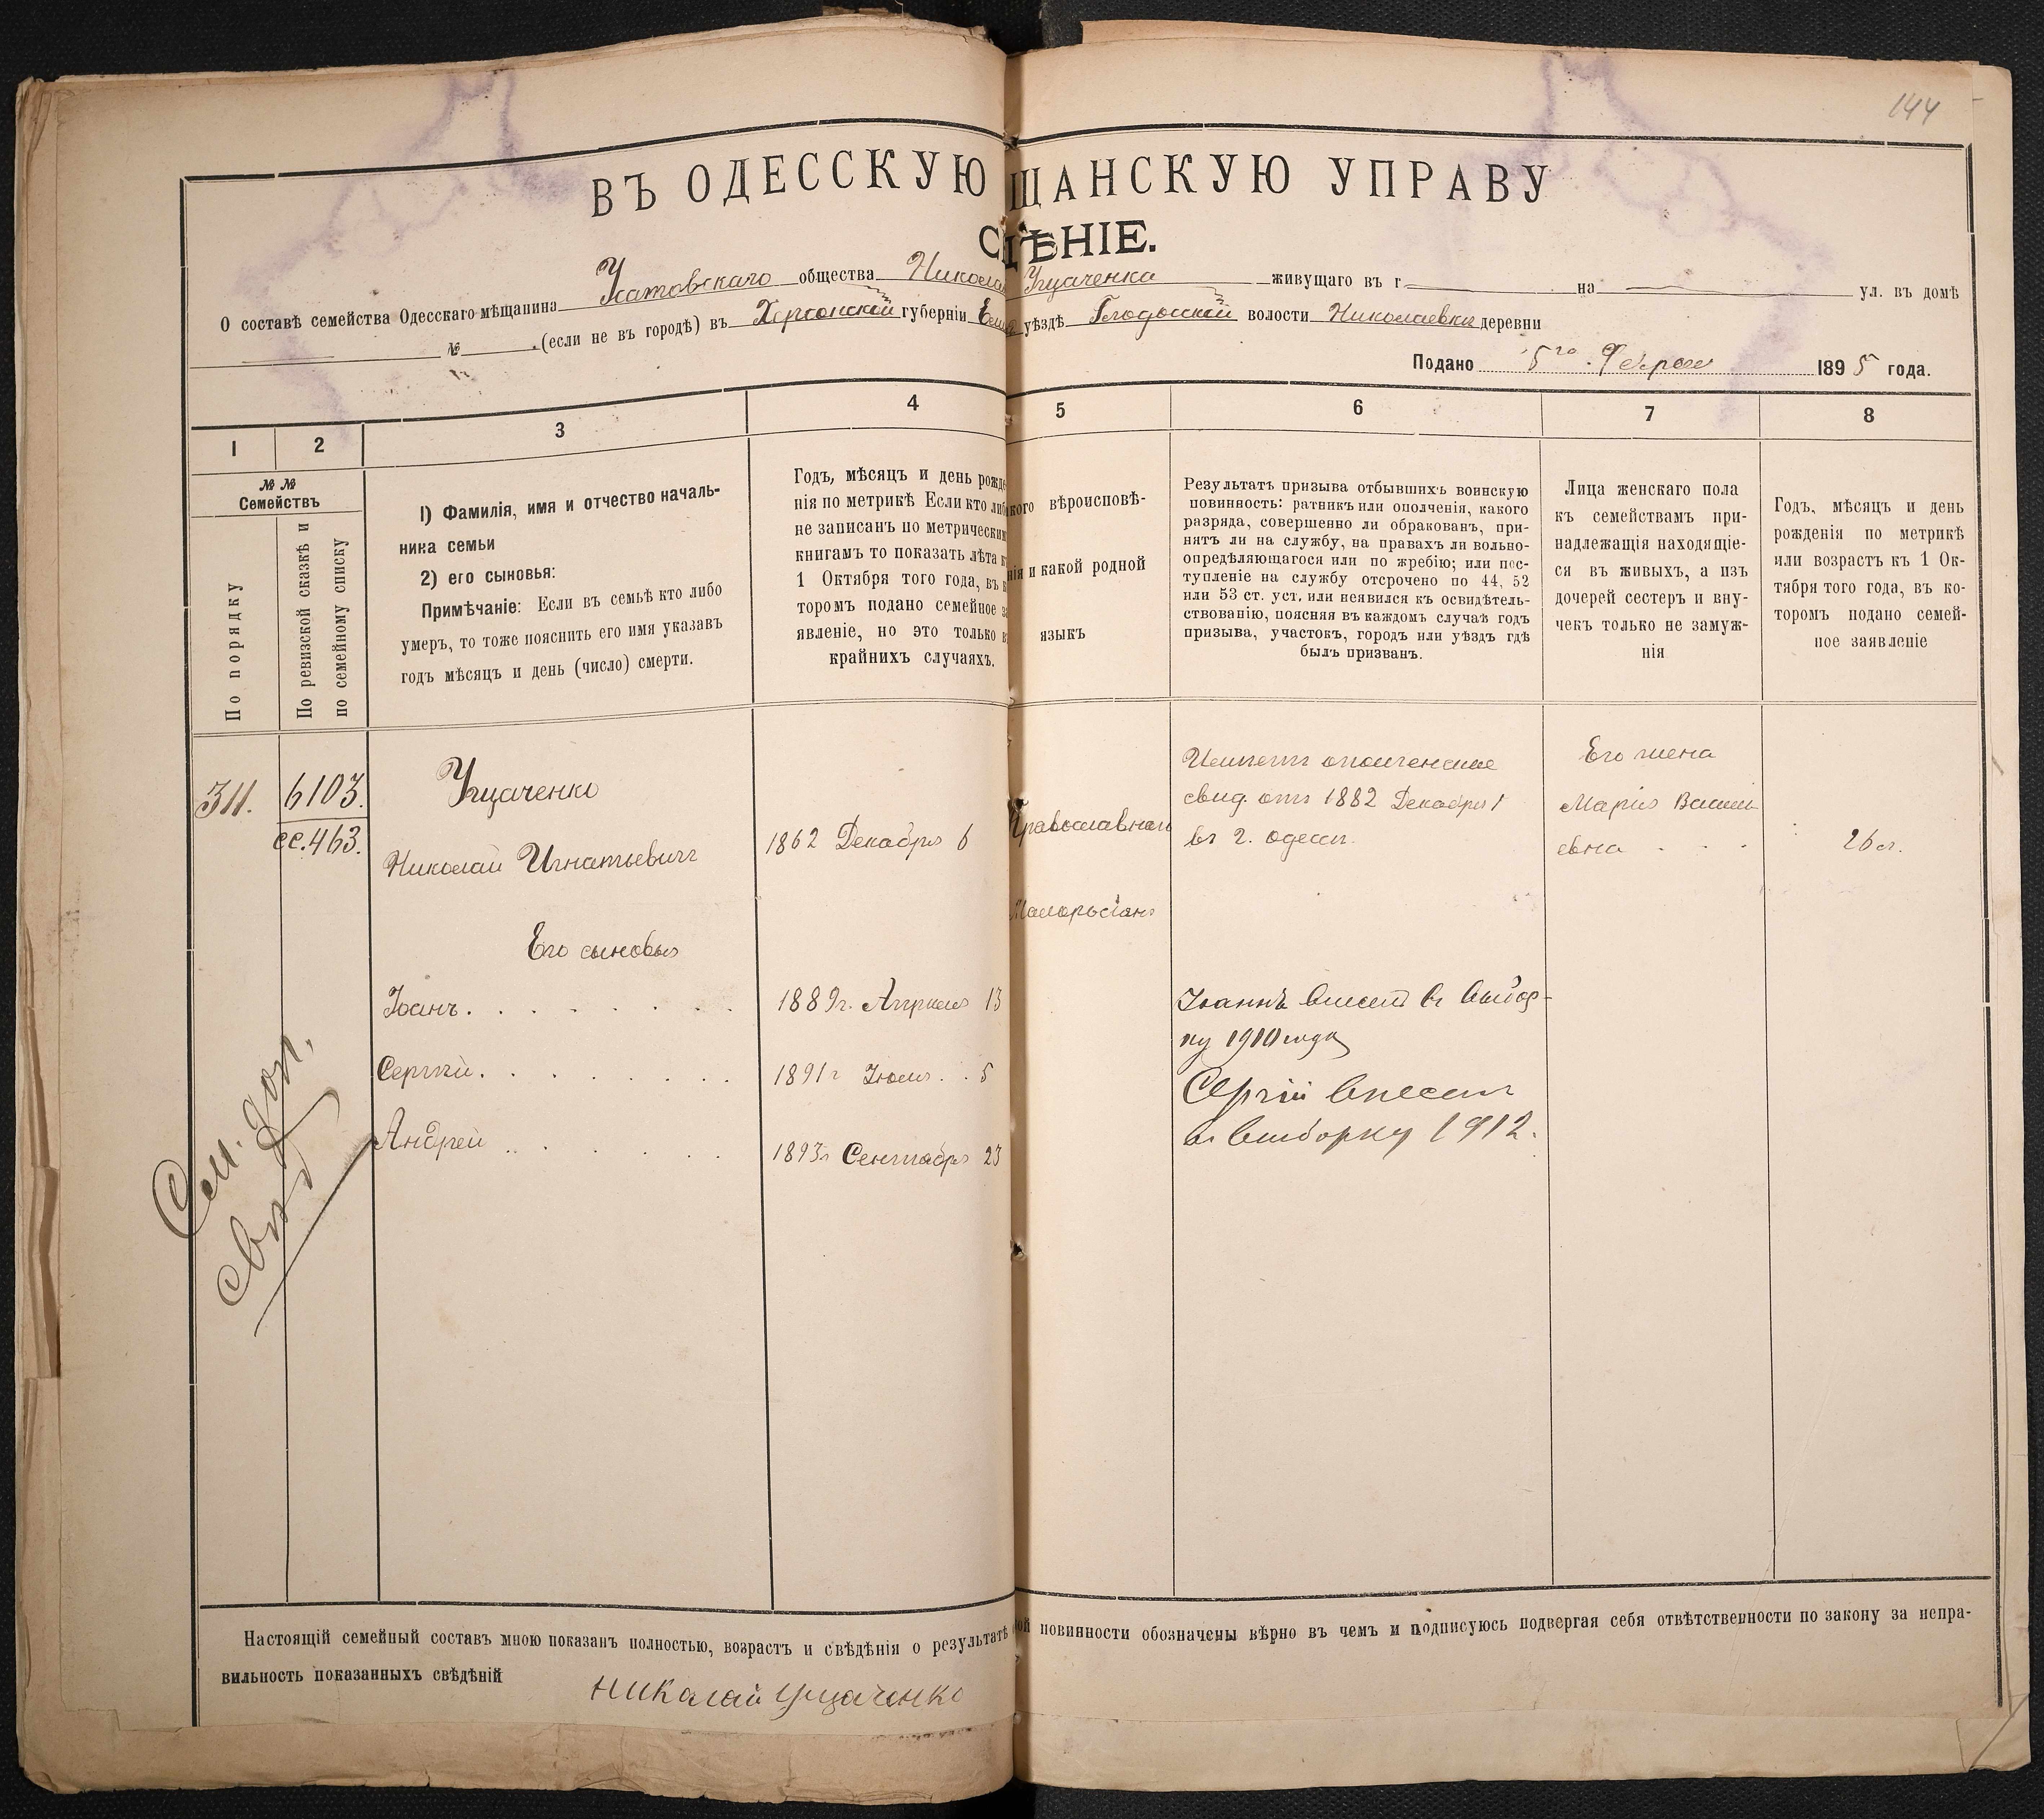 144
ВЪ ОДЕССКУЮ ЩАНСКУЮ УПРАВУ
ДѢНІЕ.
О составѣ семейства Одесскаго мѣщанина Усатовскаго общества Николая Угцаченка живущаго въ г на ул. въ домѣ
№ (если не въ городѣ) въ Херсонской губерніи уѣздѣ Глодосской волости Николаевки деревни
Подано 5го Февраля 1895 года.
1 2 3 4 5 6 7 8
№№
Семействъ
По порядку
По ревизской сказкѣ и
по семейному списку
1) Фамилія, имя и отчество началь-
ника семьи
2) его сыновья:
Примѣчаніе: Если въ семьѣ кто либо
умеръ, то тоже пояснить его имя указавъ
годъ мѣсяцъ и день (число) смерти.
Годъ, мѣсяцъ и день рожде
нія по метрикѣ Если кто либ
не записанъ по метрическим
книгамъ то показать лѣта к
1 Октября того года, въ к
торомъ подано семейное з
явленіе, но это только в
крайнихъ случаяхъ.
кого вѣроисповѣ-
нія и какой родной
языкъ
Результатъ призыва отбывшихъ воинскую
повинность: ратникъ или ополченія, какого
разряда, совершенно ли обракованъ, при-
нятъ ли на службу, на правахъ ли вольно-
опредѣляющагося или по жребію; или пос-
тупленіе на службу отсрочено по 44, 52
или 53 ст. уст. или неявился къ освидѣтель-
ствованію, поясняя въ каждомъ случаѣ годъ
призыва, участокъ, городъ или уѣздъ гдѣ
былъ призванъ.
Лица женскаго пола
къ семействамъ при-
надлежащія находящіе-
ся въ живыхъ, а изъ
дочерей сестеръ и вну-
чекъ только не замуж-
нія
Годъ, мѣсяцъ и день
рожденія по метрикѣ
или возрастъ къ 1 Ок-
тября того года, въ ко-
торомъ подано семей-
ное заявленіе
311.
6103.
сс.463.
Угцаченко
Николай Игнатьевичъ
1862 Декабря 6
Православнаго
Малоросіян
Имѣетъ ополченское
свид. отъ 1882 Декабря 1
въ г. Одессѣ.
Его жена
Марія Васили
евна . . .
26 л.
Его сыновья
Іоанъ . . . . . . .
1889г. Апрѣля 13
Іоаннъ внесенъ въ выбор-
ку 1910 года
Сергѣй . . . . . . .
1891г Іюля . . 5
Сергій внесенъ
въ выборку 1912.
Андрей . . . . . .
1893г Сентября 23
Сем. доп.
свид
Настоящій семейный составъ мною показанъ полностью, возрастъ и свѣдѣнія о результатѣ ой повинности обозначены вѣрно въ чемъ и подписуюсь подвергая себя отвѣтственности по закону за непра-
вильность показанныхъ свѣдѣній
Николай Угцаченко